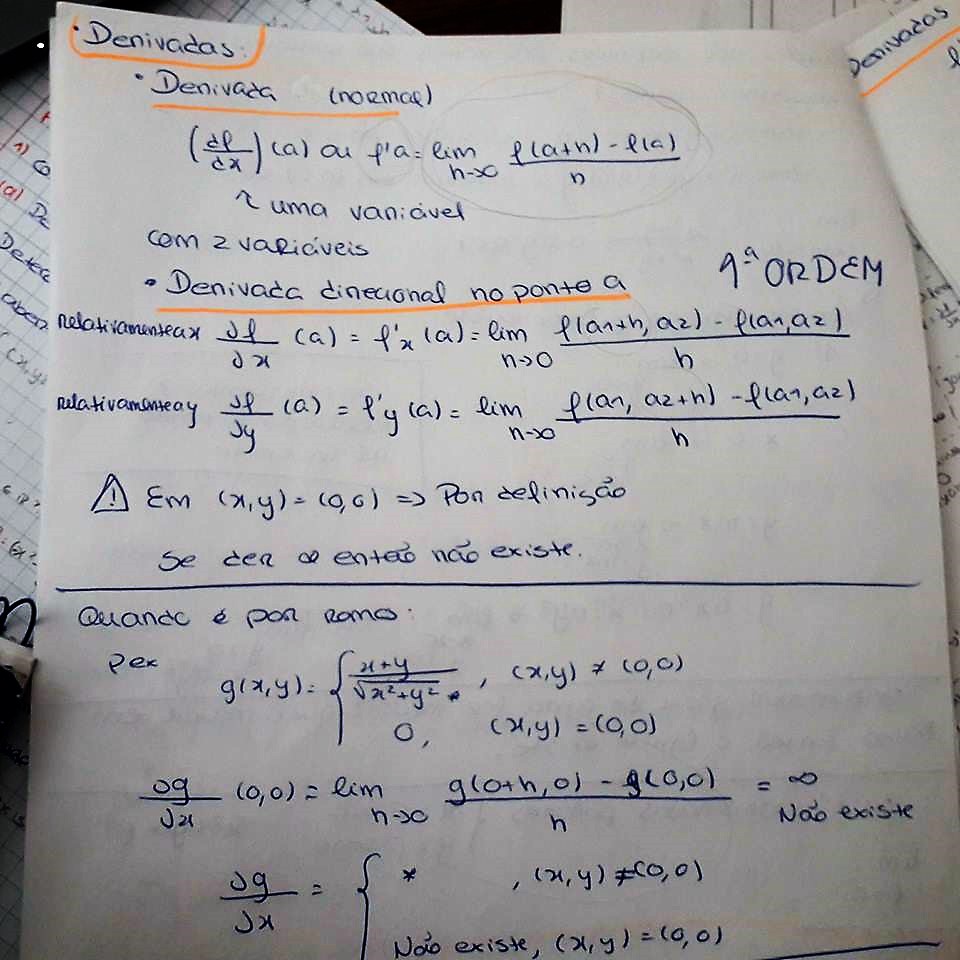 • Derivadas:
• Derivada (normal)
(df/dx)(a) ou f'a = lim h→0 f(a+h) - f(a) / h
↳ uma variável
com 2 variáveis
• Derivada direcional no ponto a
1ª ORDEM
Relativamente a x ∂f/∂x (a) = f'x (a) = lim h→0 f(a1+h, a2) - f(a1, a2) / h
Relativamente a y ∂f/∂y (a) = f'y (a) = lim h→0 f(a1, a2+h) - f(a1, a2) / h
⚠ Em (x,y) = (0,0) => Por definisão
Se der ∞ então não existe.
Quando é por ramos:
pex
g(x,y) = { x+y / √x²+y² *, (x,y) ≠ (0,0)
0, (x,y) = (0,0)
∂g/∂x (0,0) = lim h→0 g(0+h, 0) - g(0,0) / h = ∞
Não existe
∂g/∂x = { * , (x,y) ≠ (0,0)
Não existe, (x,y) = (0,0)
Derivadas
1)
(a) De